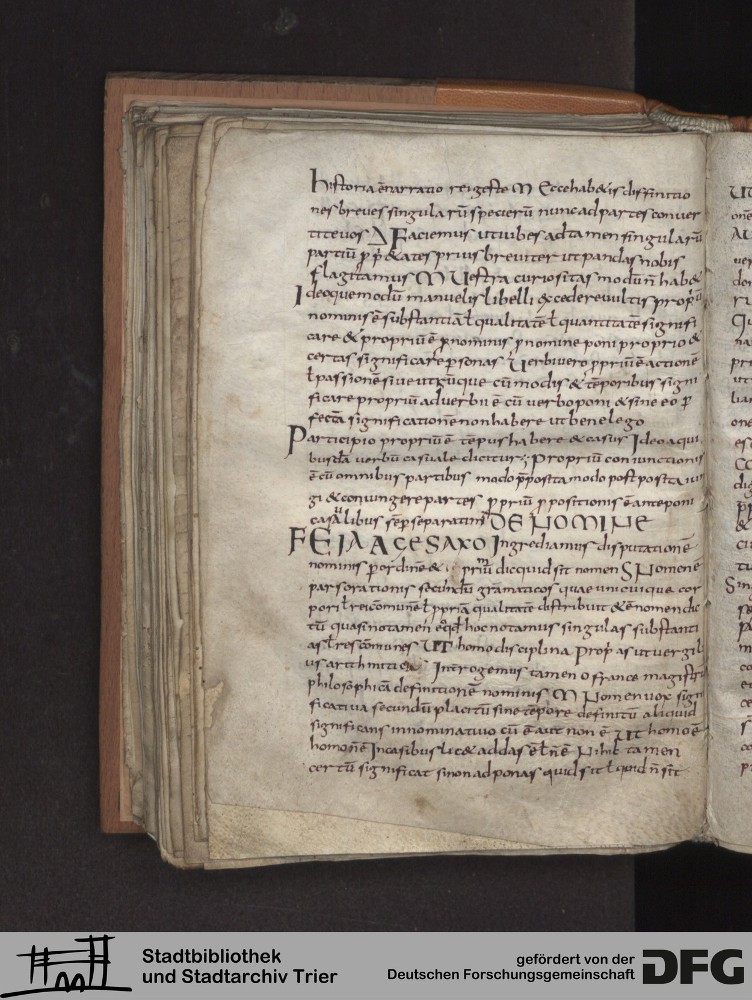 historia ẽ narratio rei gestę M Ecce hab& is diffinitio
nes breves singularũ specierũ nunc ad partes conver
tite vos Δ Faciemus ut iubes ad tamen singularũ
partiũ p p&ates prius breviter ut pandas nobis
flagitamus M Uestra curiositas modũ ñ hab&
Ideoque modũ manuelis libelli excedere vultis propriũ
nominis ẽ substantiã ł qualitatẽ ł quantitatẽ signifi
care & propriũ ẽ pnominis p nomine poni proprio &
certas significare psonas Uerbi vero ppriũ ẽ actionẽ
ł passionẽ sive utrũque cũ modis & tẽporibus signi
ficare propriũ adverbii ẽ cũ verbo poni & sine eo p
fectã significationẽ non habere ut bene lego
Participio propriũ ẽ tẽpus habere & casus Ideo a qui
busdã verbũ casuale dicitur; Propriũ coniunctionis
ẽ cũ omnibus partibus modo pposita modo postposita iun
gi & coniungere partes ppriũ p positionis ẽ anteponi
casualibus sẽp separatim DE NOMINE
FEIA AGE SAXO Ingrediamus disputationẽ
nominis p ordinẽ & priũ dic quid sit nomen S Nomen ẽ
pars orationis secundũ gramaticos quae unicuique cor
pori ł rei comunẽ ł ppriã qualitatẽ distribuit & ẽ nomen dic
tũ quasi notamen eo qd hoc notamus singulas substanti
as ł res comunes UT homo disciplina Prop as ut vergili
us arithmitica Interrogemus tamen o france magistrũ
philosophicã definitionẽ nominis M Nomen vox signi
ficativa secundũ placitũ sine tẽpore definitũ aliquid
significans in nominativo cũ ẽ aut non ẽ Ut homo ẽ
homo ñ ẽ In casibus lic& addas ẽ ł ñ ẽ Nihil tamen
certũ significat si non adponas quid sit ł quid ñ sit
Stadtbibliothek
und Stadtarchiv Trier
gefördert von der
Deutschen Forschungsgemeinschaft
DFG